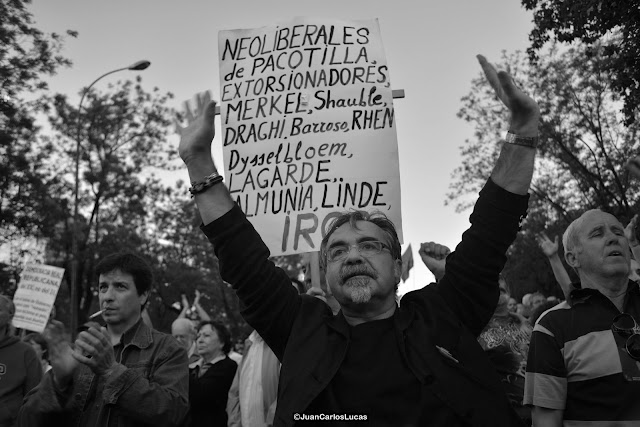 NEOLIBERALES
de PACOTILLA,
EXTORSIONADORES,
MERKEL, Shauble,
DRAGHI, Barroso, RHEN
Dysselbloem,
LAGARDE..
ALMUNIA, LINDE,
©JuanCarlosLucas